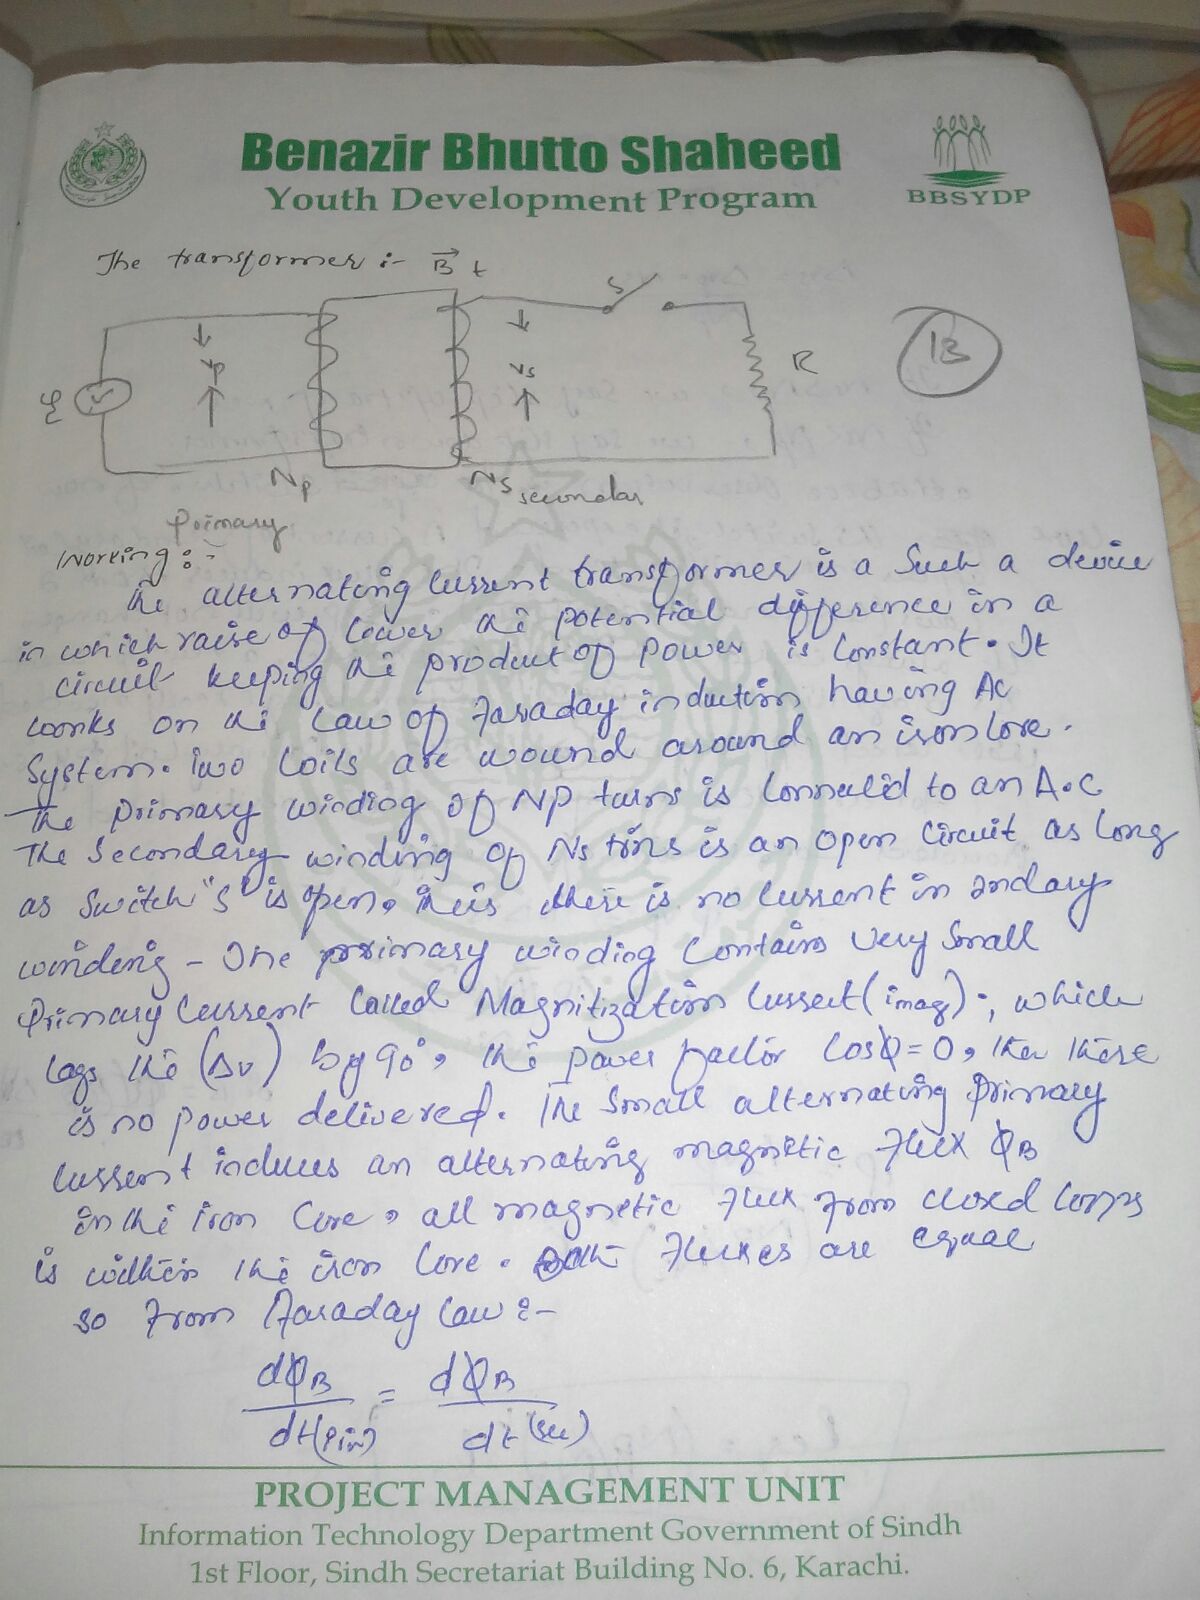 Benazir Bhutto Shaheed
Youth Development Program
BBSYDP
The transformer :- B t
S
Vp
Vs
R
13
ξ
Np
Ns
secondar
Primary
Working :-
The alternating current transformer is a such a device
in which raise of lower the potential difference in a
circuit keeping the product of power is constant. It
works on the law of Faraday induction having Ac
system. Two coils are wound around an iron core.
The primary winding of NP turns is connected to an A.C
The Secondary winding of Ns turns is an open circuit as long
as switch "S" is open, thus there is no current in 2ndary
winding - The primary winding contains very small
Primary current called Magnitization current (imag); which
lags the (Δv) by 90°, the power factor cosφ = 0, then there
is no power delivered. The small alternating primary
current induces an alternating magnetic flux φB
in the iron core, all magnetic flux from closed
is within the iron core. Both fluxes are equal
so from Faraday law :-
dφB = dφB
dt(Pim) dt (sec)
PROJECT MANAGEMENT UNIT
Information Technology Department Government of Sindh
1st Floor, Sindh Secretariat Building No. 6, Karachi.